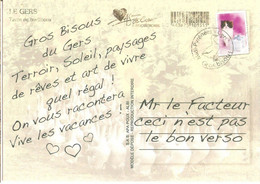 LE GERS
Gros Bisous
du Gers
Terroir, Soleil, paysages
de rêves et art de vivre
quel régal !
On vous racontera
Vive les vacances !
Mr le Facteur
ceci n'est pas
le bon verso